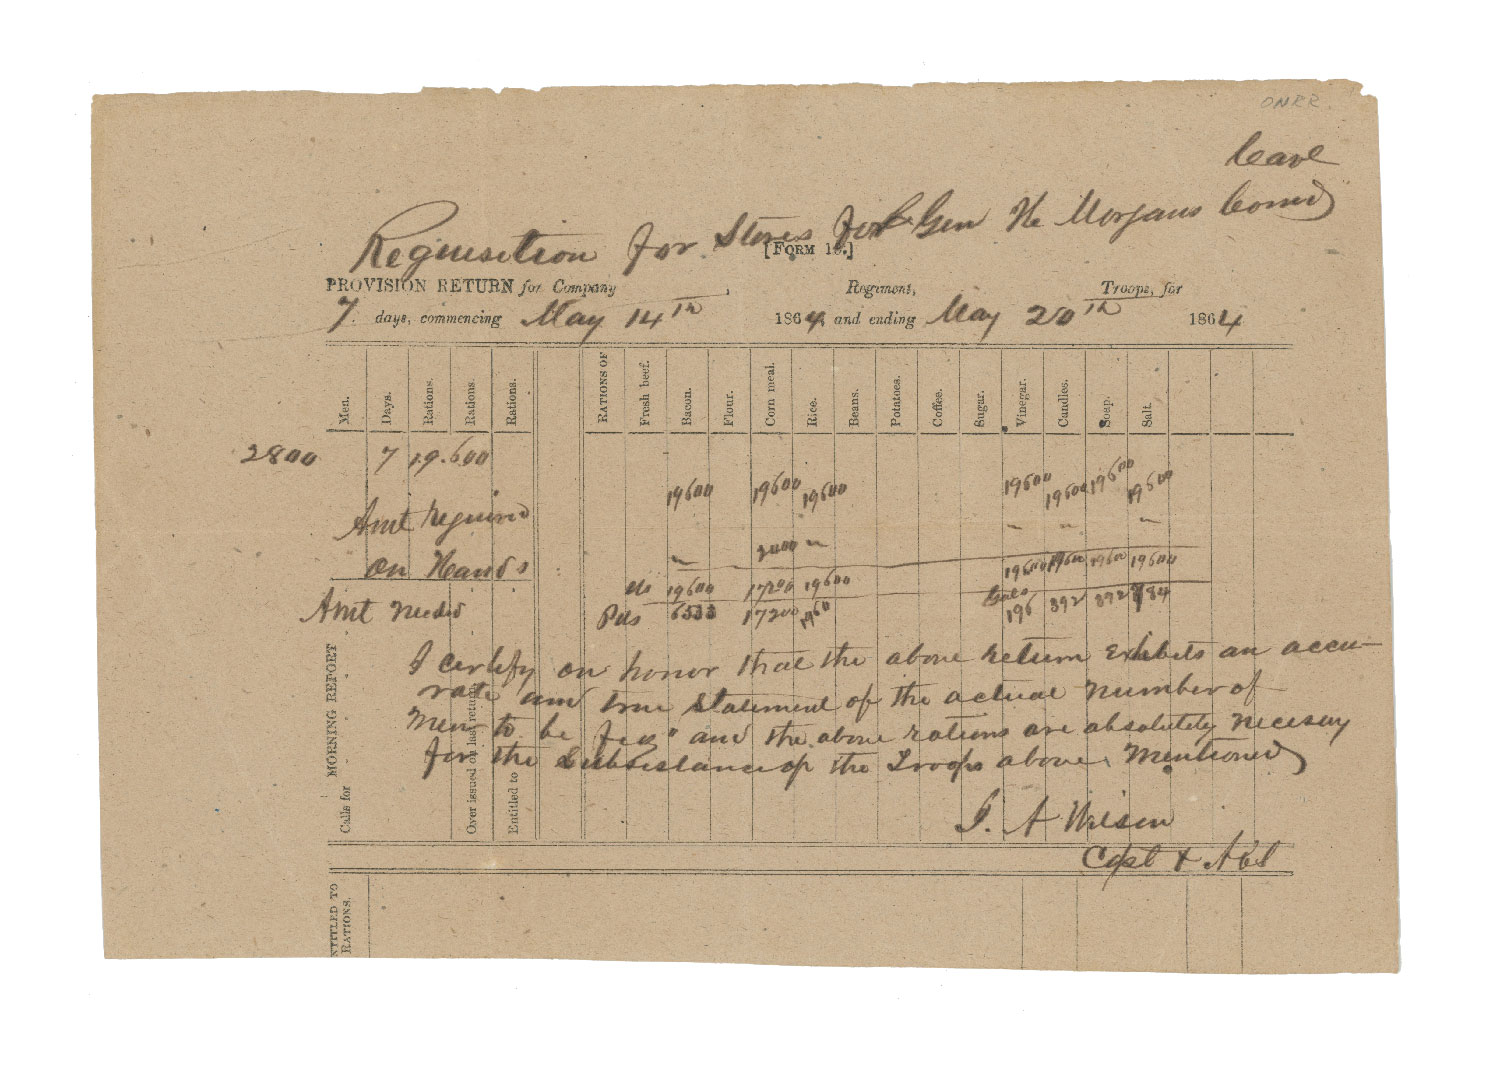 ONRR.
Cave
Requisition for Stores for Gen Morgans Comd
[FORM 13.]
PROVISION RETURN for Company , Regiment, Troops, for
7 days, commencing May 14th 1864, and ending May 20th 1864
Men. Days. Rations. Rations. Rations. RATIONS OF Fresh beef. Bacon. Flour. Corn meal. Rice. Beans. Potatoes. Coffee. Sugar. Vinegar. Candles. Soap. Salt.
2800 7 19.600
19600 19600 19600 19600 19600 19600 19600
Amt Required
" 2400 " " " "
on Hands
19600 17200 19600 19600 19600 19600 19600
Amt needed
Pds 6533 17200 1960 Gals 196 392 392 784
I certify on honor that the above return exhibits an accu-
rate and true statement of the actual number of
men to be fed" and the above rations are absolutely necessay
for the subsistance of the Troops above mentioned
J. A Wilson
Capt & ACS
MORNING REPORT
Calls for
Over issued on last return
Entitled to
NTITLED TO
RATIONS.